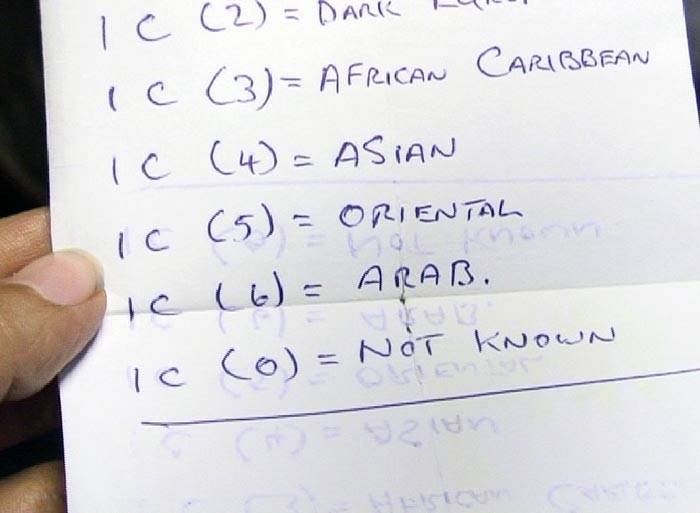 IC (2) = DARK
IC (3) = AFRICAN CARIBBEAN
IC (4) = ASIAN
IC (5) = ORIENTAL
IC (6) = ARAB.
IC (0) = NOT KNOWN